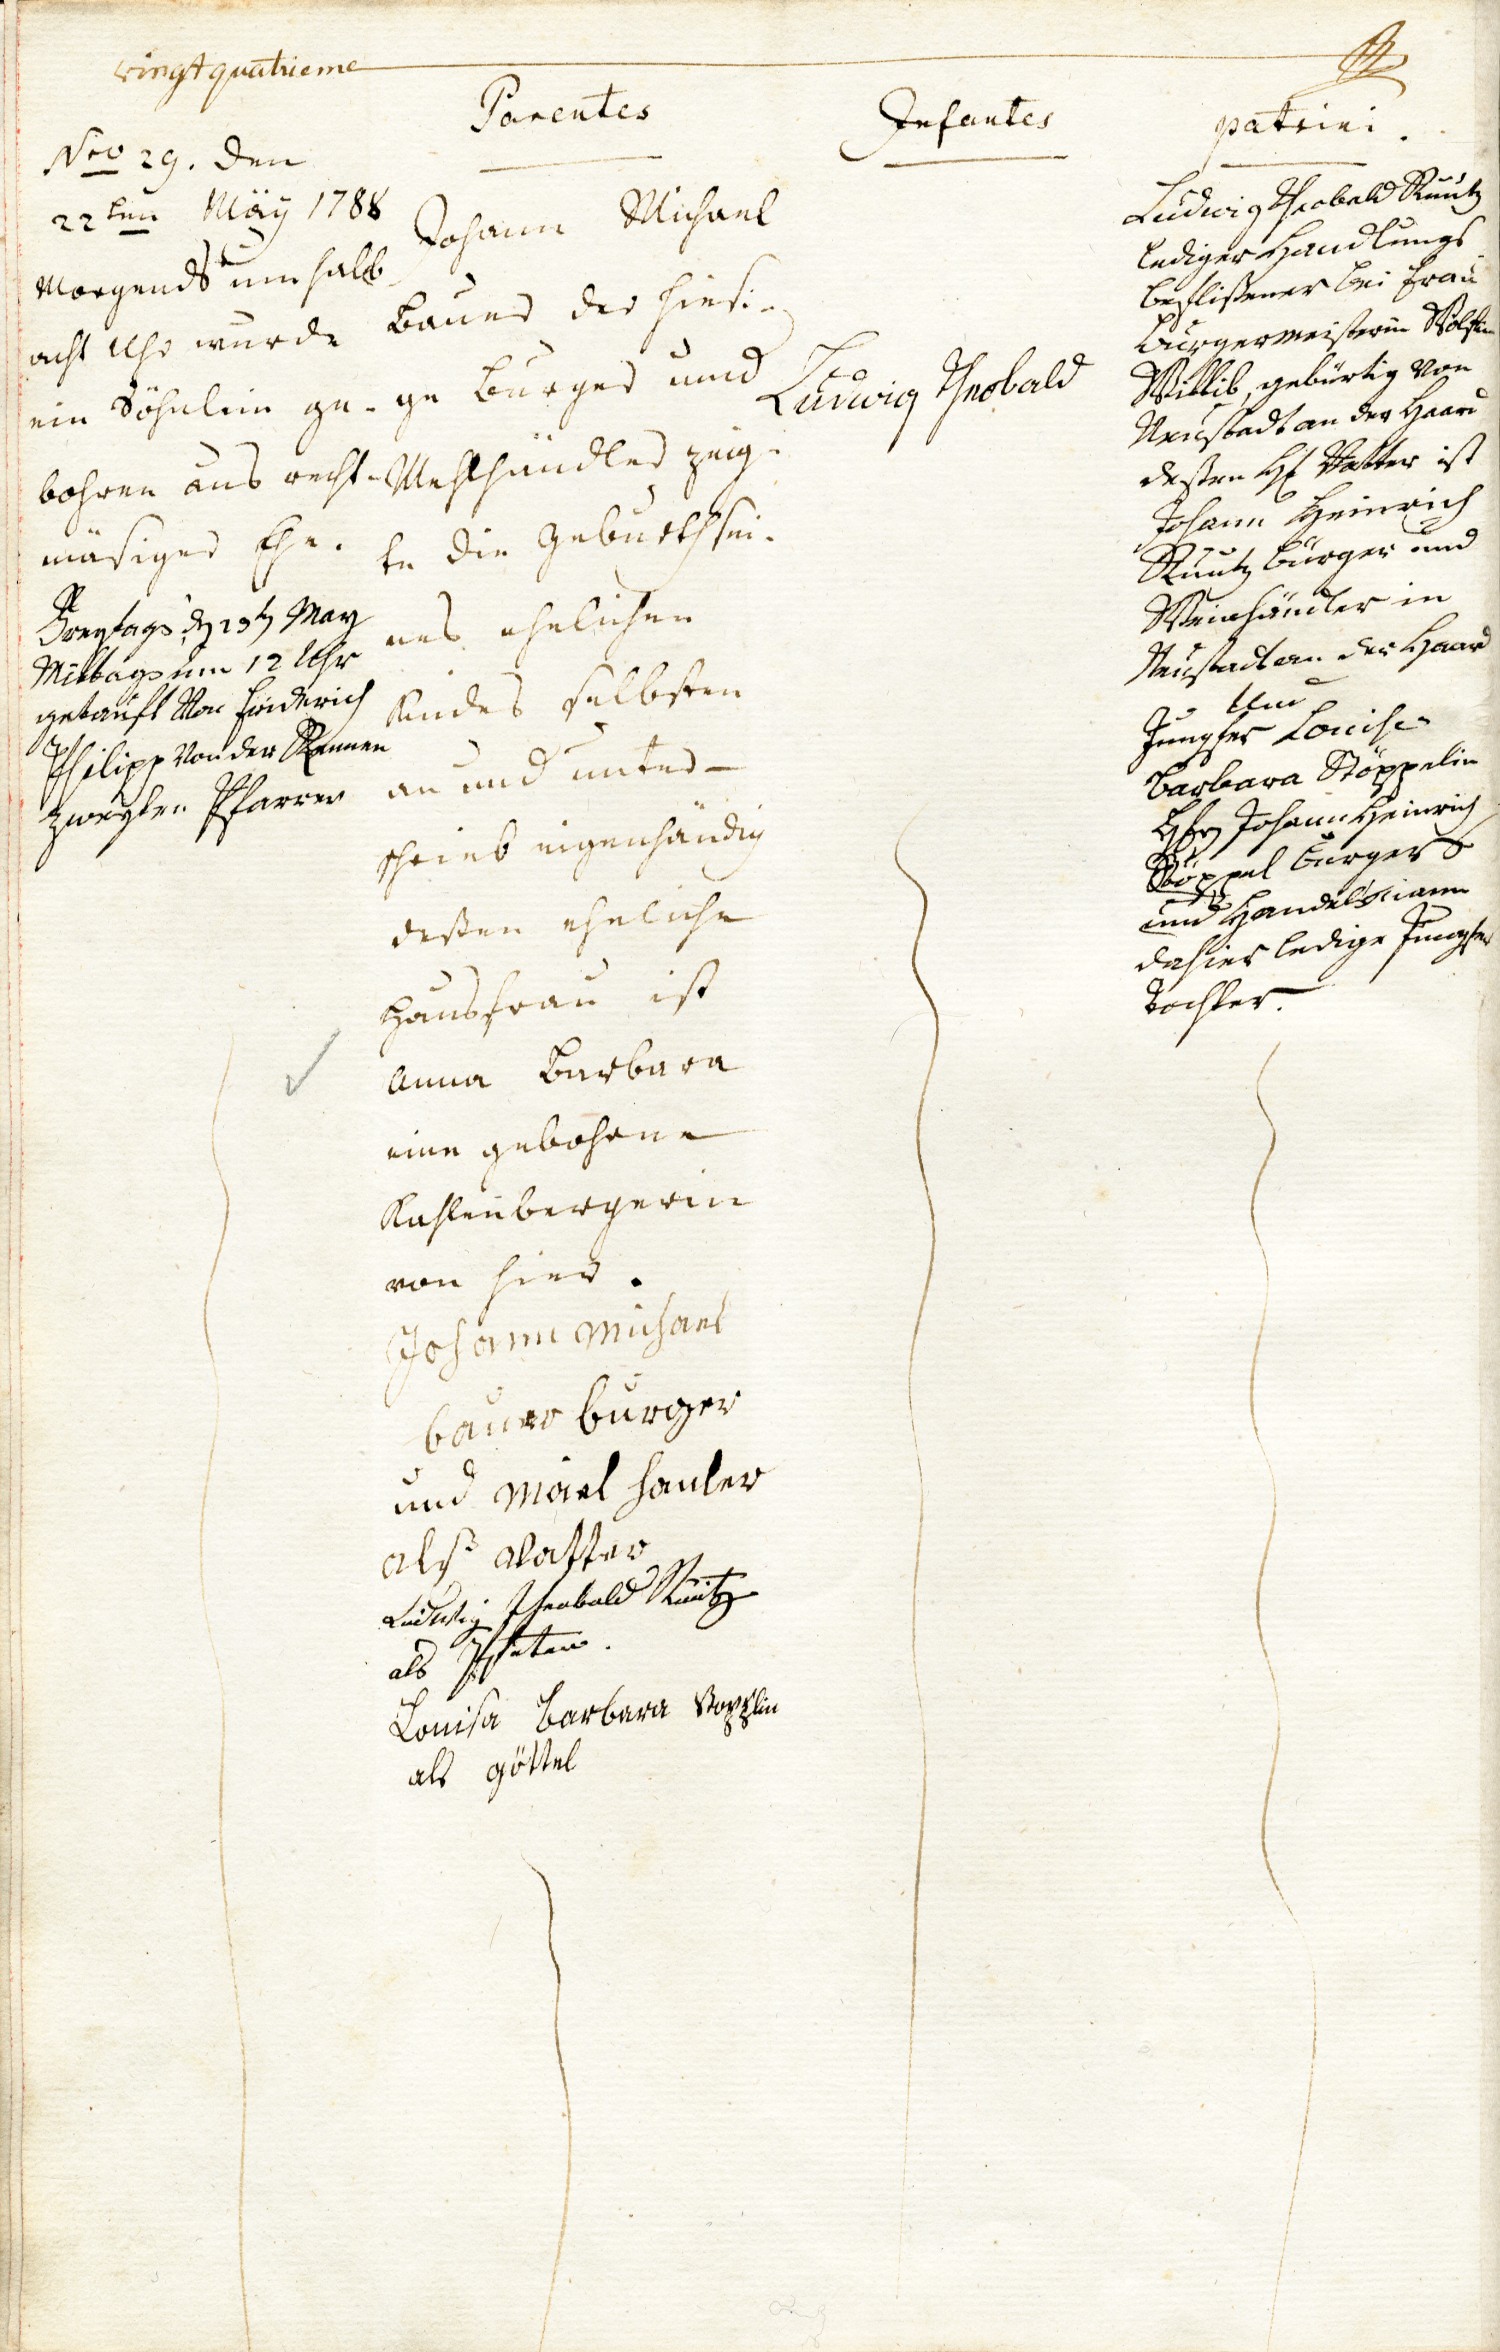 vingt quatrieme
Nro 29. den
22ten Mäÿ 1788
Morgends um halb
acht Uhr wurde
ein Söhnlein ge-
bohren aus recht-
mäsiger Ehe.
Freytags, d. 23t. May
Mittags um 12 Uhr
getauft Von Friderich
Philipp Von der Rennen
zweyten Pfarrer
Parentes
Johann Michael
Bauer der hiesi-
ge Burger und
Mehlhändler zeig-
te die Geburth sei-
nes ehelichen
Kindes selbsten
an und unter-
schrieb eigenhändig
deßen eheliche
Hausfrau ist
Anna Barbara
eine gebohrne
Kahlenbergerin
von hier.
Johann Michael
bauer burger
und Mäel hanler
alß Vatter
Ludwig Theobald Kuntz
als Pfetter.
Louisa Barbara Stopplin
als göttel
Infantes
Ludwig Theobald
patrini.
Ludwig Theobald Kuntz
lediger Handlungs
beflißener bei Frau
Burgermeisterin
gebürtig Von
Neustadt an der Haard
deßen H. Vatter ist
Johann Heinrich
Kuntz Bürger und
Weinhändler in
Neustadt an der Haard
Und
Jungfer Louise
Barbara Stöppelin
Johann Heinrich
Stöppel Burgers
und Handelsmann
dahier ledige Jungfer
Tochter.